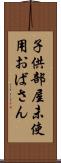 子供部屋未使
用おばさん